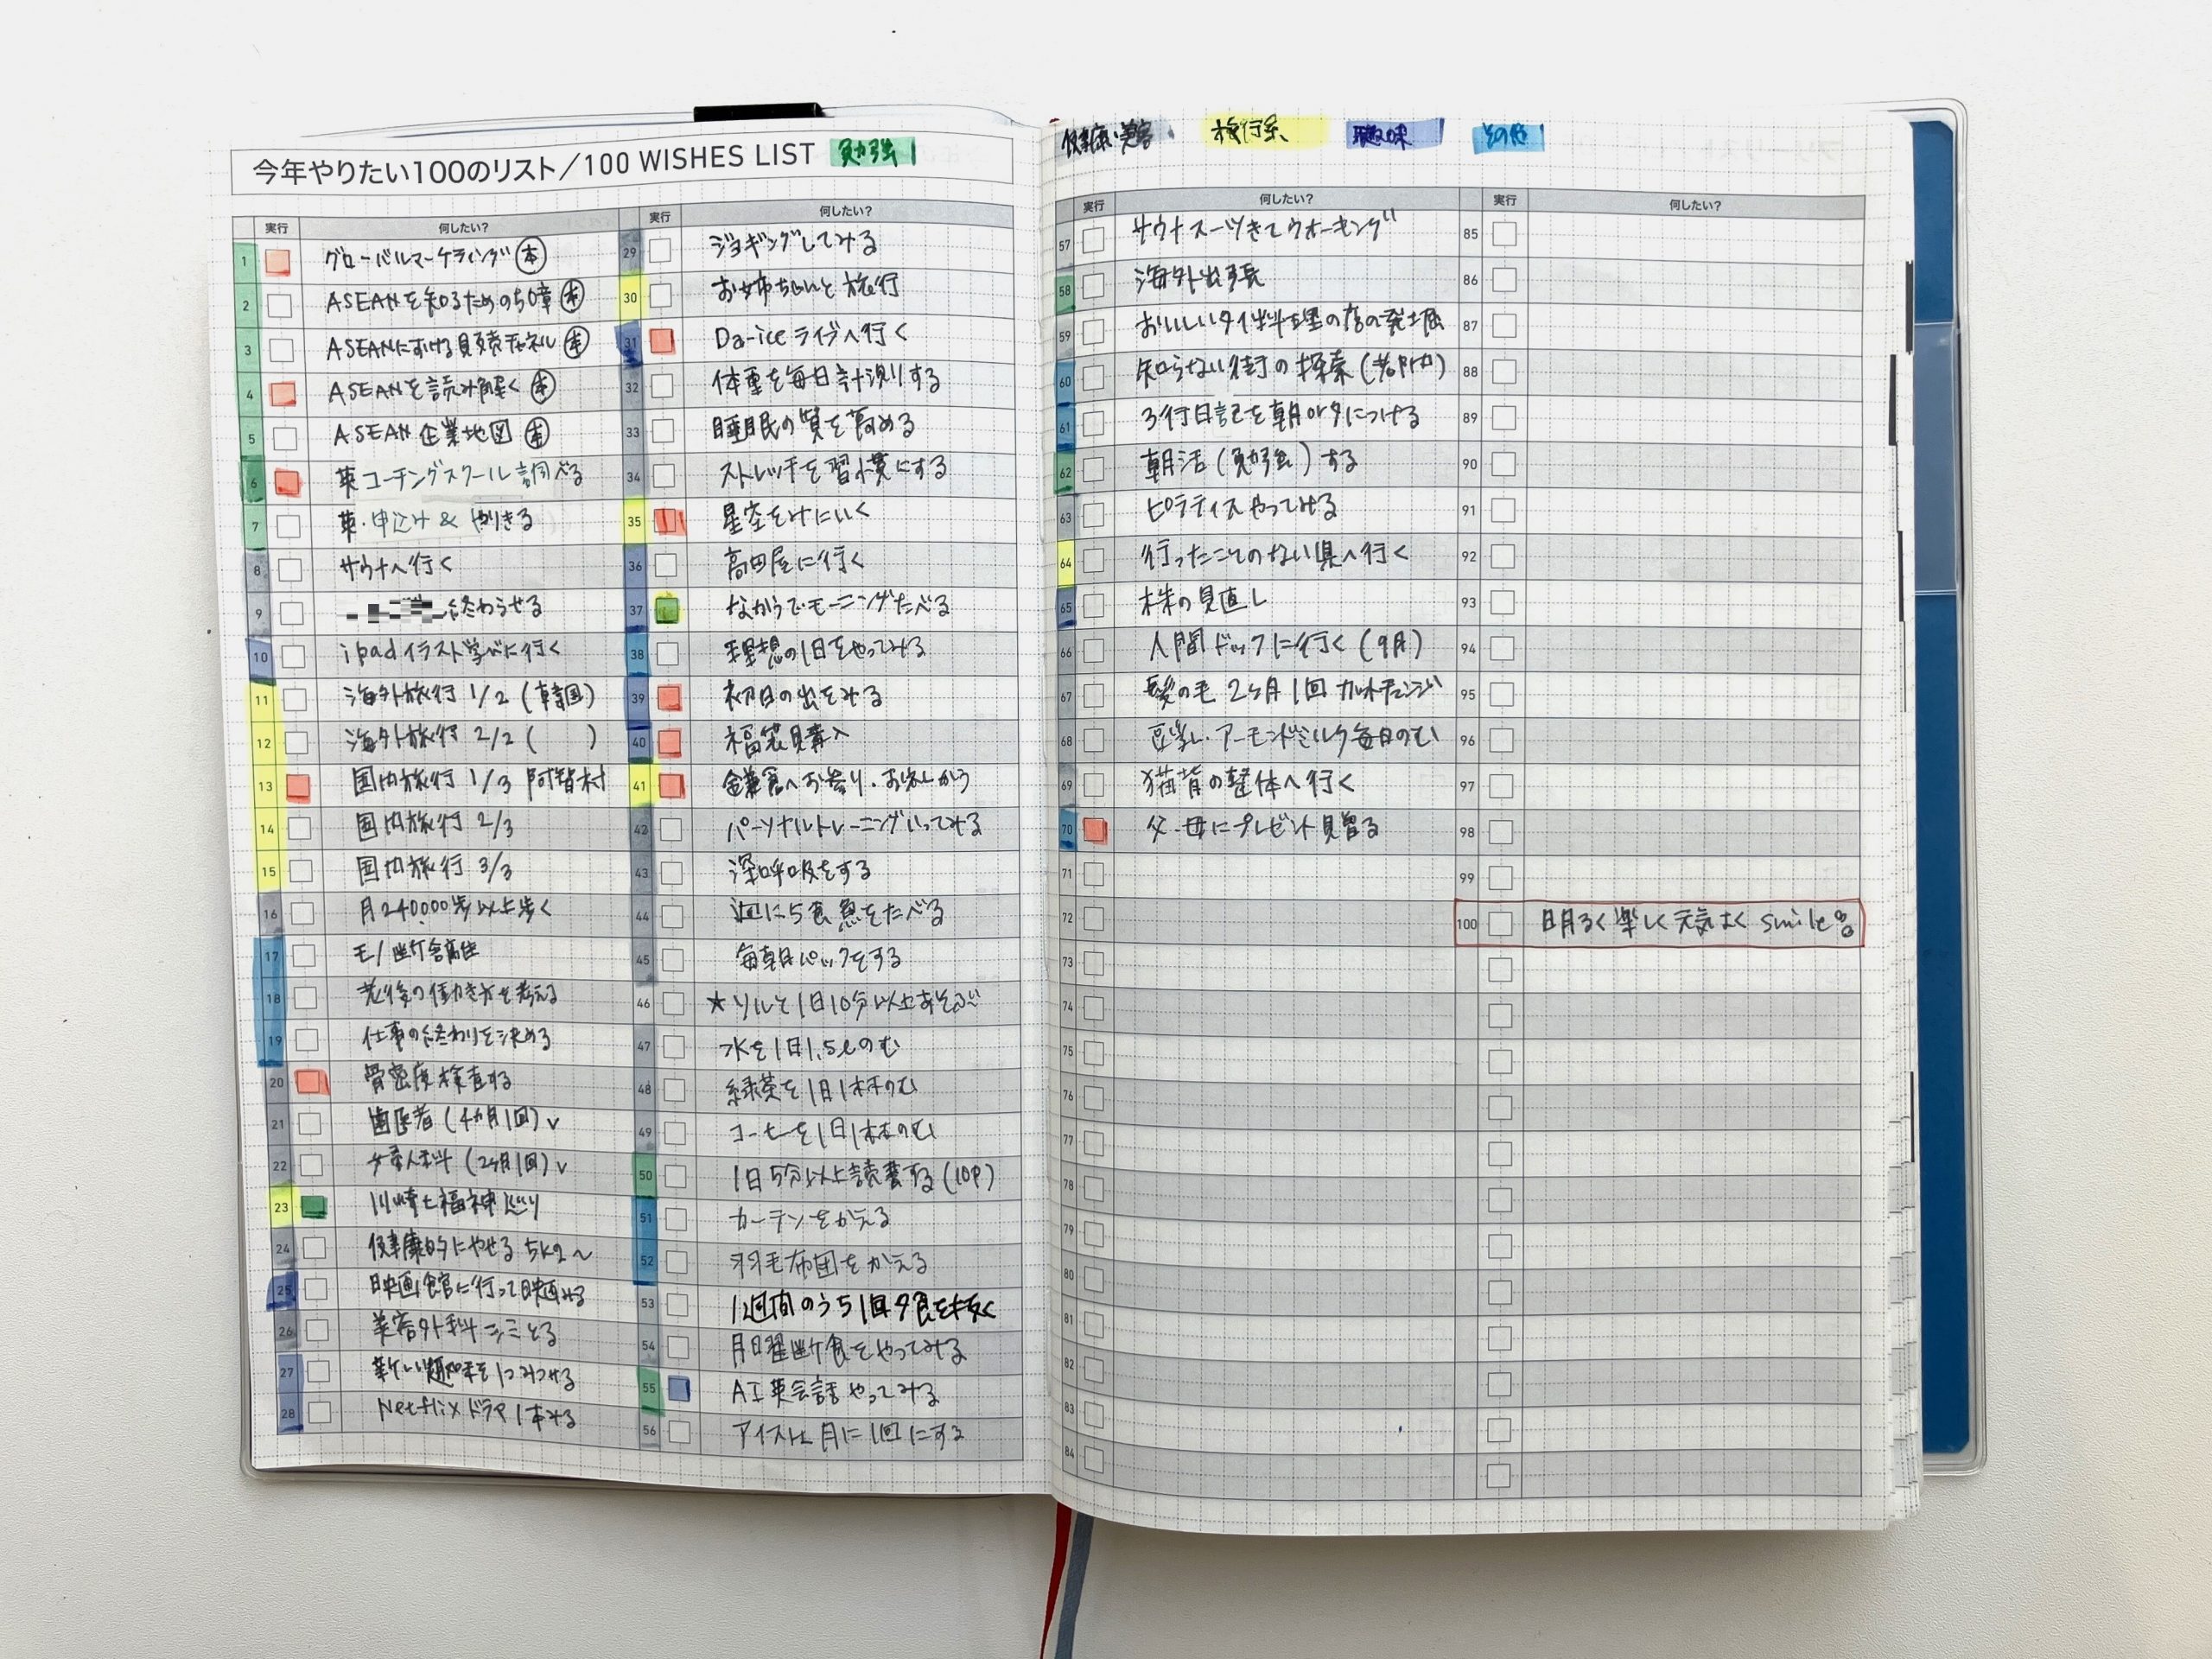 今年やりたい100のリスト／100 WISHES LIST 勉強
実行 何したい?
1 グローバルマーケティング 本
2 ASEANを知るための50章 本
3 ASEANにおける販売チャネル 本
4 ASEANを読み解く 本
5 ASEAN企業地図 本
6 英コーチングスクール調べる
7 英・申込み & やりきる
8 サウナへ行く
9 終わらせる
10 ipadイラスト学びに行く
11 海外旅行 1/2 (韓国)
12 海外旅行 2/2 ( )
13 国内旅行 1/3 阿智村
14 国内旅行 2/3
15 国内旅行 3/3
16 月240000歩以上歩く
17 モノ断舎離
18 老後の働き方を考える
19 仕事の終わりを決める
20 骨密度検査する
21 歯医者 (4カ月1回) v
22 婦人科 (2ヶ月1回) v
23 川崎七福神巡り
24 健康的にやせる 5kg〜
25 映画館に行って映画みる
26 美容外科 シミとる
27 新しい趣味を1つみつける
28 Netflixドラマ1本みる
実行 何したい?
29 ジョギングしてみる
30 お姉ちゃんと旅行
31 Da-iceライブへ行く
32 体重を毎日計測りする
33 睡眠の質を高める
34 ストレッチを習慣にする
35 星空をみにいく
36 高田屋に行く
37 ながらでモーニングたべる
38 理想の1日をやってみる
39 初日の出をみる
40 福袋購入
41 鎌倉へお参り・おみしかう
42 パーソナルトレーニングいってみる
43 深呼吸をする
44 週に5食魚をたべる
45 毎朝パックをする
46 ★ソルと1日10分以上あそぶ
47 水を1日1.5ℓのむ
48 緑茶を1日1杯のむ
49 コーヒーを1日1杯のむ
50 1日5分以上読書する (10P)
51 カーテンをかえる
52 羽毛布団をかえる
53 1週間のうち1回夕食を抜く
54 月曜断食をやってみる
55 AI英会話やってみる
56 アイスは月に1回にする
健康・美容 旅行系 趣味 その他
実行 何したい?
57 サウナスーツきてウォーキング
58 海外出張
59 おいしいタイ料理の店の発掘
60 知らない街の探索
61 3行日記を朝or夕につける
62 朝活 (勉強) する
63 ピラティスやってみる
64 行ったことのない県へ行く
65 株の見直し
66 人間ドックに行く (9月)
67 髪の毛 2ヶ月1回 カルテチェンジ
68 豆乳・アーモンドミルク毎日のむ
69 猫背の整体へ行く
70 父・母にプレゼント贈る
71
72
73
74
75
76
77
78
79
80
81
82
83
84
実行 何したい?
85
86
87
88
89
90
91
92
93
94
95
96
97
98
99
100 明るく楽しく元気よく smile